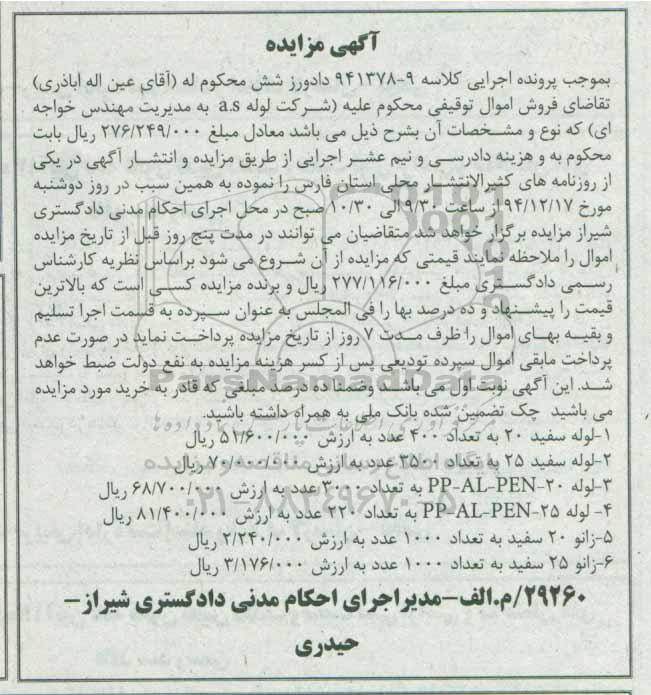 آگهی مزایده
بموجب پرونده اجرایی کلاسه ۹-۹۴۱۳۷۸ دادورز شش محکوم له (آقای عین اله اباذری)
تقاضای فروش اموال توقیفی محکوم علیه (شرکت لوله a.s به مدیریت مهندس خواجه
ای) که نوع و مشخصات آن بشرح ذیل می باشد معادل مبلغ ۲۷۶/۲۴۹/۰۰۰ ریال بابت
محکوم به و هزینه دادرسی و نیم عشر اجرایی از طریق مزایده و انتشار آگهی در یکی
از روزنامه های کثیرالانتشار محلی استان فارس را نموده به همین سبب در روز دوشنبه
مورخ ۹۴/۱۲/۱۷از ساعت ۹/۳۰الی ۱۰/۳۰ صبح در محل اجرای احکام مدنی دادگستری
شیراز مزایده برگزار خواهد شد متقاضیان می توانند در مدت پنج روز قبل از تاریخ مزایده
اموال را ملاحظه نمایند قیمتی که مزایده از آن شروع می شود براساس نظریه کارشناس
رسمی دادگستری مبلغ ۲۷۷/۱۱۶/۰۰۰ ریال و برنده مزایده کسی است که بالاترین
قیمت را پیشنهاد و ده درصد بها را فی المجلس به عنوان سپرده به قسمت اجرا تسلیم
و بقیه بهای اموال را ظرف مدت ۷ روز از تاریخ مزایده پرداخت نماید در صورت عدم
پرداخت مابقی اموال سپرده تودیعی پس از کسر هزینه مزایده به نفع دولت ضبط خواهد
شد. این آگهی نوبت اول می باشد وضمنا ده درصد مبلغی که قادر به خرید مورد مزایده
می باشید چک تضمین شده بانک ملی به همراه داشته باشید.
۱-لوله سفید ۲۰ به تعداد ۴۰۰ عدد به ارزش ۵۱/۶۰۰/۰۰۰ ریال
۲-لوله سفید ۲۵ به تعداد ۳۵۰ عدد به ارزش ۷۰/۰۰۰/۰۰۰ ریال
۳-لوله PP-AL-PEN-۲۰ به تعداد ۳۰۰۰ عدد به ارزش ۶۸/۷۰۰/۰۰۰ ریال
۴- لوله PP-AL-PEN-۲۵ به تعداد ۲۲۰ عدد به ارزش ۸۱/۴۰۰/۰۰۰ ریال
۵-زانو ۲۰ سفید به تعداد ۱۰۰۰ عدد به ارزش ۲/۲۴۰/۰۰۰ ریال
۶-زانو ۲۵ سفید به تعداد ۱۰۰۰ عدد به ارزش ۳/۱۷۶/۰۰۰ ریال
۲۹۲۶۰/م.الف-مدیراجرای احکام مدنی دادگستری شیراز-
حیدری
ParsNamadData
۰۲۱-۸۸۳۴۹۶۷۰-۵